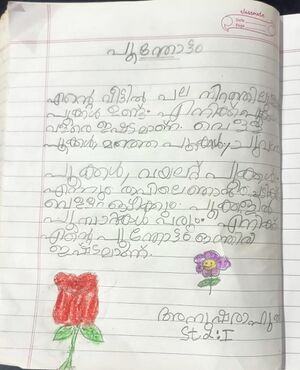 classmate
Date
Page
പൂന്തോട്ടം
എന്റെ വീട്ടിൽ പല നിറത്തിലുള്ള
പൂക്കൾ ഉണ്ട്. എനിക്ക് പൂക്കൾ
വളരെ ഇഷ്ടമാണ്. വെള്ള
പൂക്കൾ, മഞ്ഞ പൂക്കൾ, ചുവന്ന
പൂക്കൾ, വയലറ്റ് പൂക്കൾ.
വെള്ളം ഒഴിക്കും. പൂക്കളിൽ
പൂമ്പാറ്റകൾ വരും. എനിക്ക്
എന്റെ പൂന്തോട്ടം ഒത്തിരി
ഇഷ്ടമാണ്.
Std: I